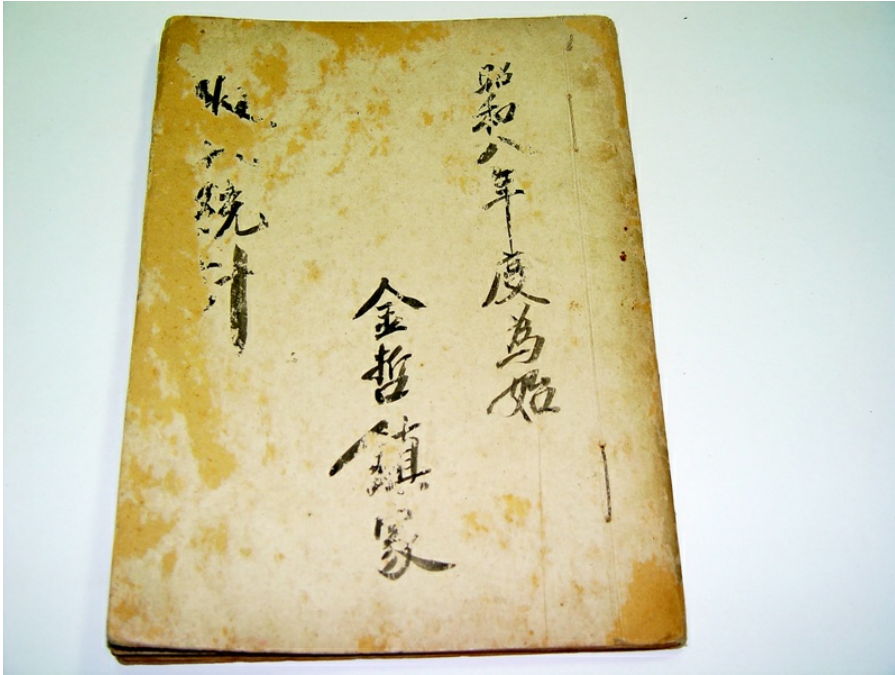 昭和八年度為始
金哲鎮家
收入統計